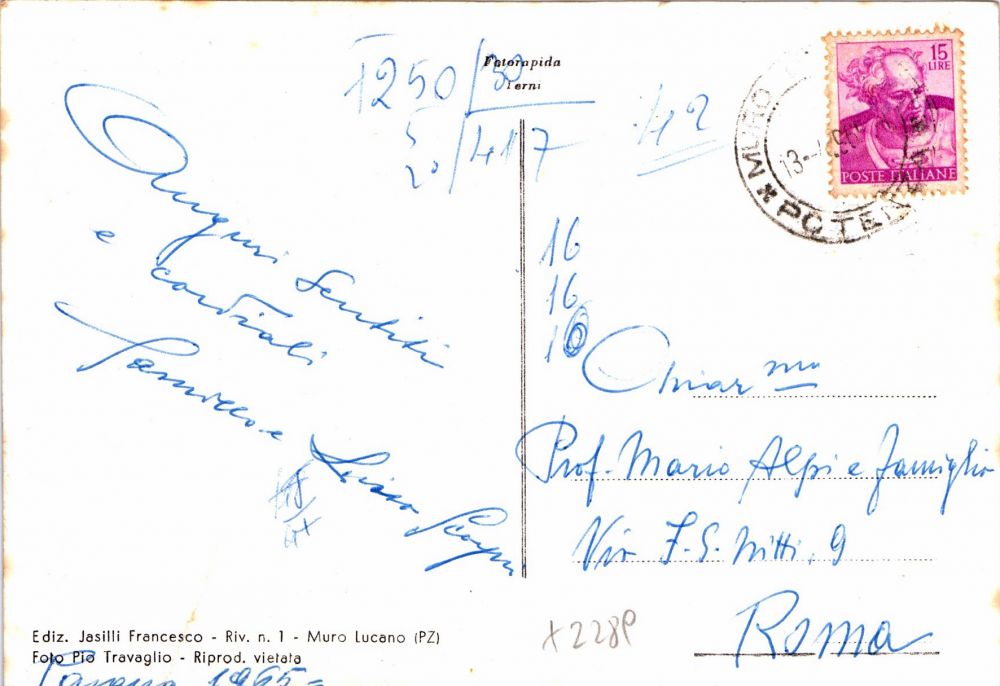 Fotorapida
Terni
1250/30
5
20/417
1/42
15
LIRE
POSTE ITALIANE
MURO
POTENZA
13-4
16
16
10
Auguri Sentiti
e cordiali
Chiar mo
Prof. Mario Alpi e famiglia
Via F. S. Nitti, 9
Roma
x228P
Ediz. Jasilli Francesco - Riv. n. 1 - Muro Lucano (PZ)
Foto Pio Travaglio - Riprod. vietata
1965